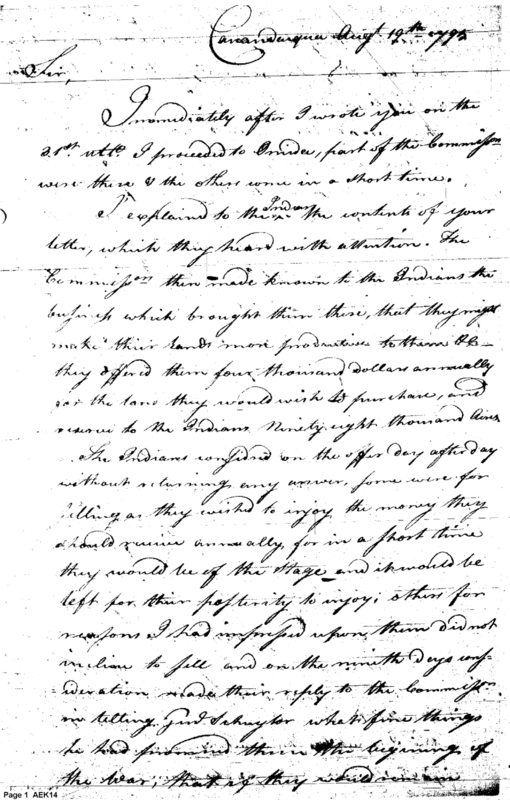 Canandarqua Augt. 19th 1795
Sir,
Immediately after I wrote you on the
31st. ulto. I proceeded to Onida, part of the Commissrs
were there & the others come in a short time.
I explained to the Indians the contents of your
letter, which they heard with attention. The
Commissrs then made known to the Indians the
business which brought them there, that they might
make their lands more productive to them &c
they offered them four thousand dollars annually
for the land they would wish to purchase, and
reserve to the Indians Ninety eight thousand Acres
The Indians considred on the offer day after day
without returning any answer, some were for
selling as they wished to injoy the money they
should receive annually, for in a short time
they would be of the Stage and it would be
left for their posterity to injoy; others for
reasons I had impressed upon them did not
incline to sell and on the nineth days con-
sideration made their reply to the Commissrs
in telling Genl Schuylor what fine things
he had promised them the begining of
the War, that if they would remain
Page 1 AEK14